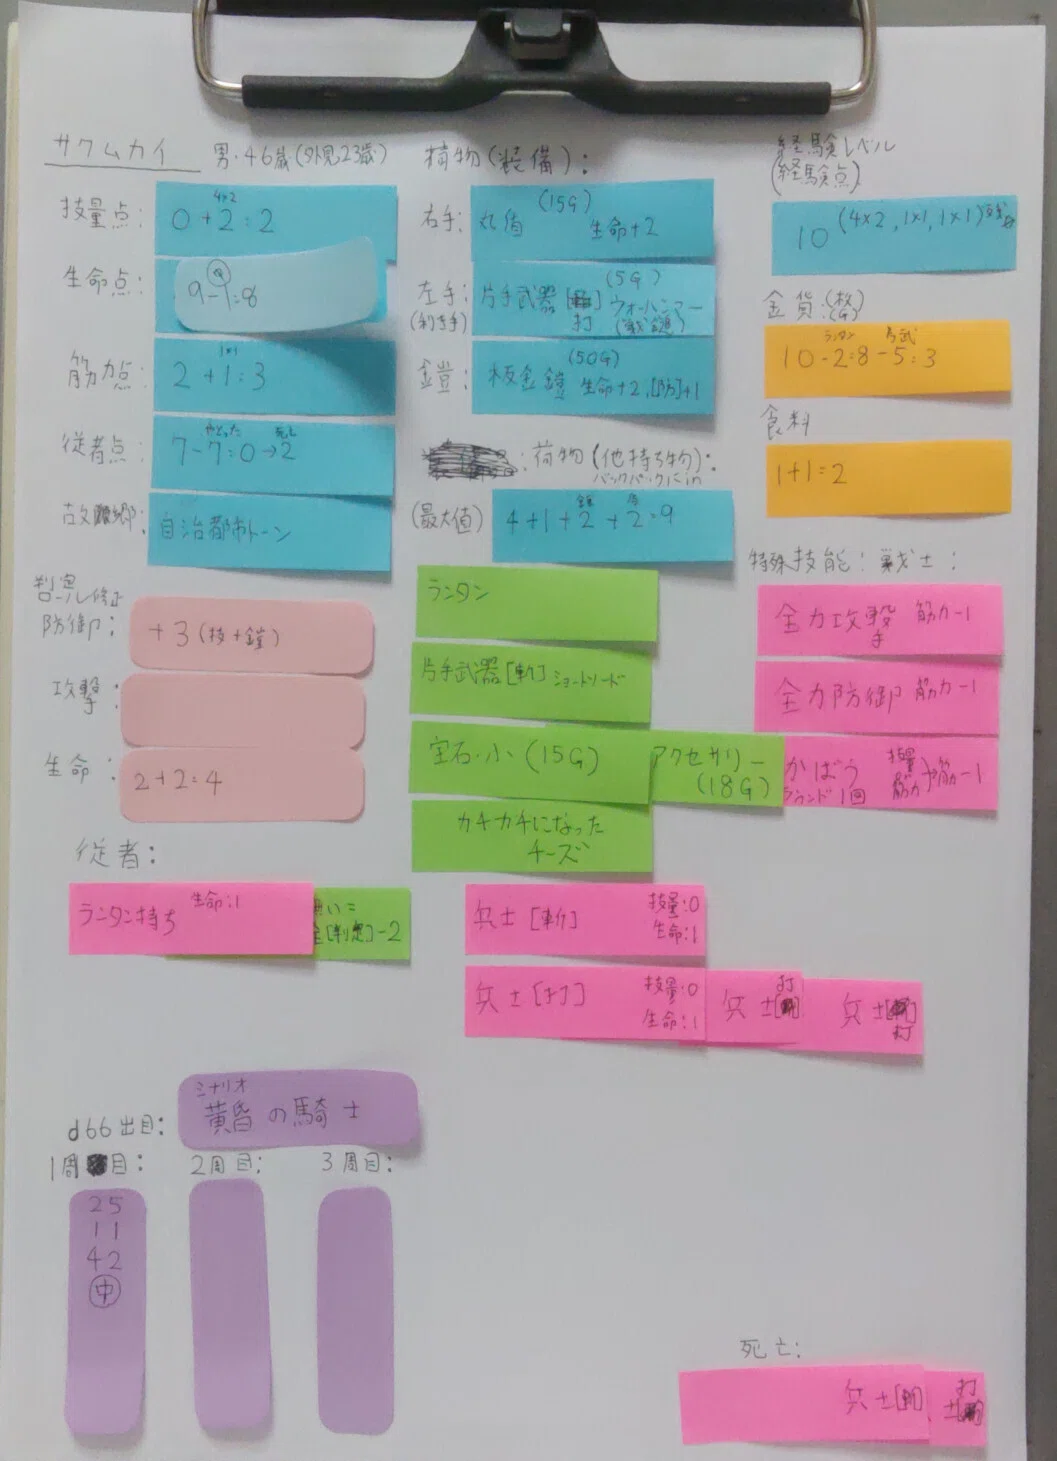 サクムカイ 男・46歳(外見23歳)
技量点: 4×2
0+2=2
生命点: 9-1=8
筋力点: 1×1
2+1=3
従者点: やとった 死亡
7-7=0→2
故郷: 自治都市トーン
判定ロール修正
防御: +3(技+鎧)
攻撃:
生命: 2+2=4
従者:
ランタン持ち 生命:1
無い=
全[判定]-2
持物(装備):
右手: 丸盾 (15G) 生命+2
左手:(利き手) 片手武器[打] (5G) ウォーハンマー(戦鎚)
鎧: 板金鎧 (50G) 生命+2,[防]+1
:荷物(他持ち物):
バックパックにin
(最大値) 4+1+2+2=9
ランタン
片手武器[斬] ショートソード
宝石・小(15G)
アクセサリー(18G)
カチカチになった
チーズ
兵士[斬] 技量:0
生命:1
兵士[打] 技量:0
生命:1
兵士[打]
兵士[打]
経験レベル
(経験点)
10(4×2,1×1,1×1)
金貨:(枚)(G)
ランタン
10-2=8-5=3
食料
1+1=2
特殊技能:戦士:
全力攻撃 筋力-1
全力防御 筋力-1
かばう 技量 筋力 筋-1
ラウンド1回
d66出目:
シナリオ
黄昏の騎士
1周目:
25
11
42
中
2周目:
3周目:
死亡:
兵士[斬]
士[打]